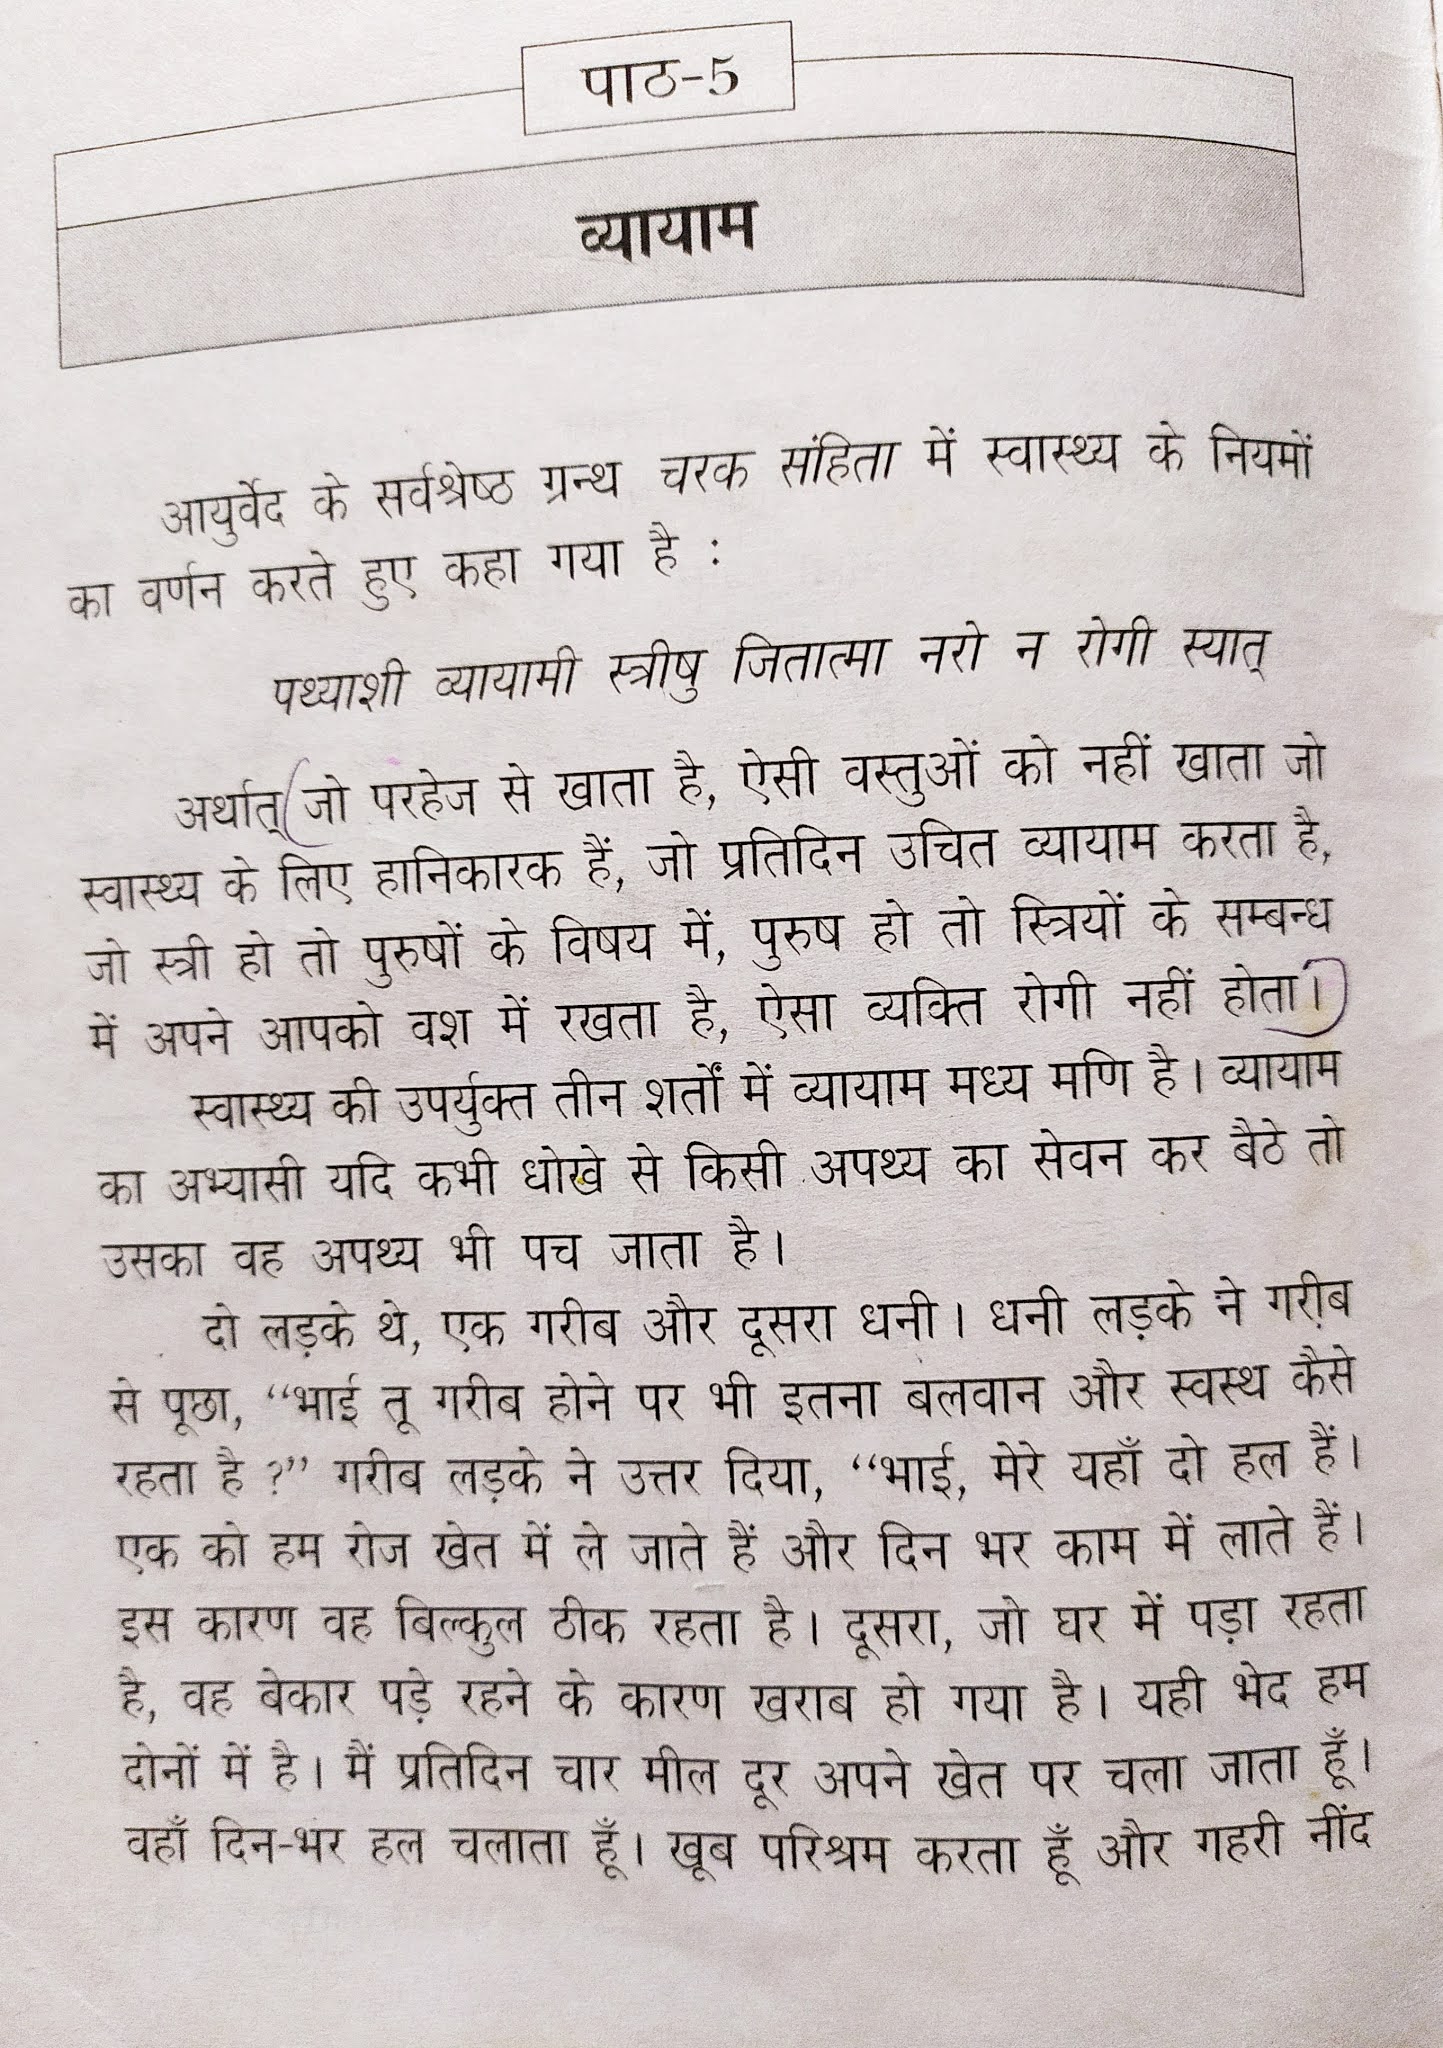 पाठ-5
व्यायाम
आयुर्वेद के सर्वश्रेष्ठ ग्रन्थ चरक संहिता में स्वास्थ्य के नियमों
का वर्णन करते हुए कहा गया है :
पथ्याशी व्यायामी स्त्रीषु जितात्मा नरो न रोगी स्यात्
अर्थात् (जो परहेज से खाता है, ऐसी वस्तुओं को नहीं खाता जो
स्वास्थ्य के लिए हानिकारक हैं, जो प्रतिदिन उचित व्यायाम करता है,
जो स्त्री हो तो पुरुषों के विषय में, पुरुष हो तो स्त्रियों के सम्बन्ध
में अपने आपको वश में रखता है, ऐसा व्यक्ति रोगी नहीं होता।)
स्वास्थ्य की उपर्युक्त तीन शर्तों में व्यायाम मध्य मणि है। व्यायाम
का अभ्यासी यदि कभी धोखे से किसी अपथ्य का सेवन कर बैठे तो
उसका वह अपथ्य भी पच जाता है।
दो लड़के थे, एक गरीब और दूसरा धनी। धनी लड़के ने गरीब
से पूछा, “भाई तू गरीब होने पर भी इतना बलवान और स्वस्थ कैसे
रहता है ?” गरीब लड़के ने उत्तर दिया, “भाई, मेरे यहाँ दो हल हैं।
एक को हम रोज खेत में ले जाते हैं और दिन भर काम में लाते हैं।
इस कारण वह बिल्कुल ठीक रहता है। दूसरा, जो घर में पड़ा रहता
है, वह बेकार पड़े रहने के कारण खराब हो गया है। यही भेद हम
दोनों में है। मैं प्रतिदिन चार मील दूर अपने खेत पर चला जाता हूँ।
वहाँ दिन-भर हल चलाता हूँ। खूब परिश्रम करता हूँ और गहरी नींद